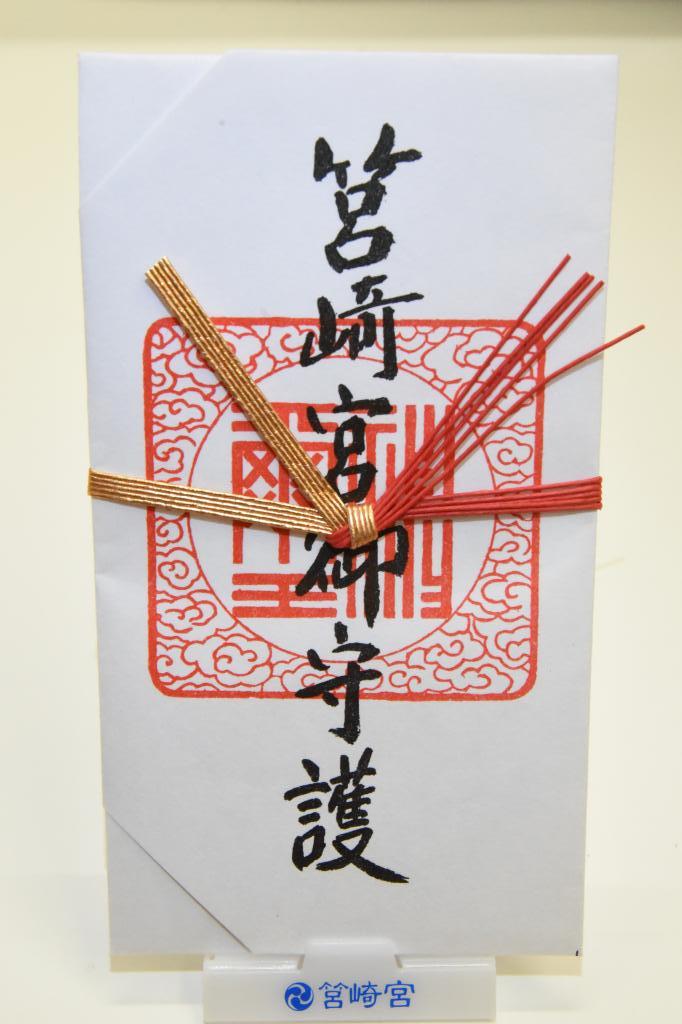 筥崎宮御守護
筥崎宮